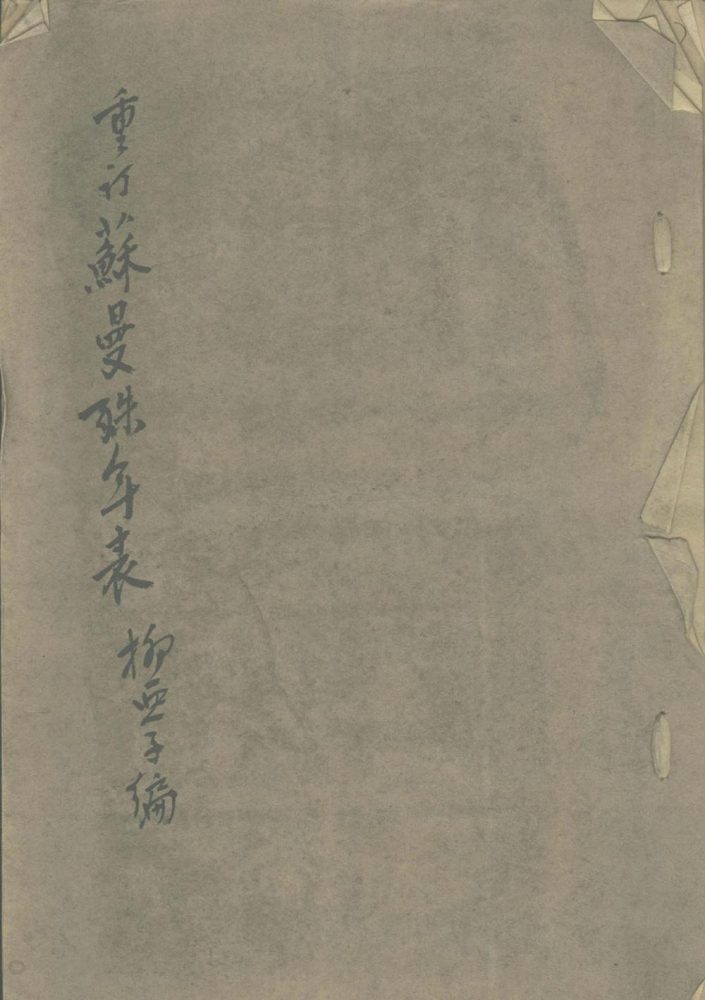 重订蘇曼殊年表 柳亞子编